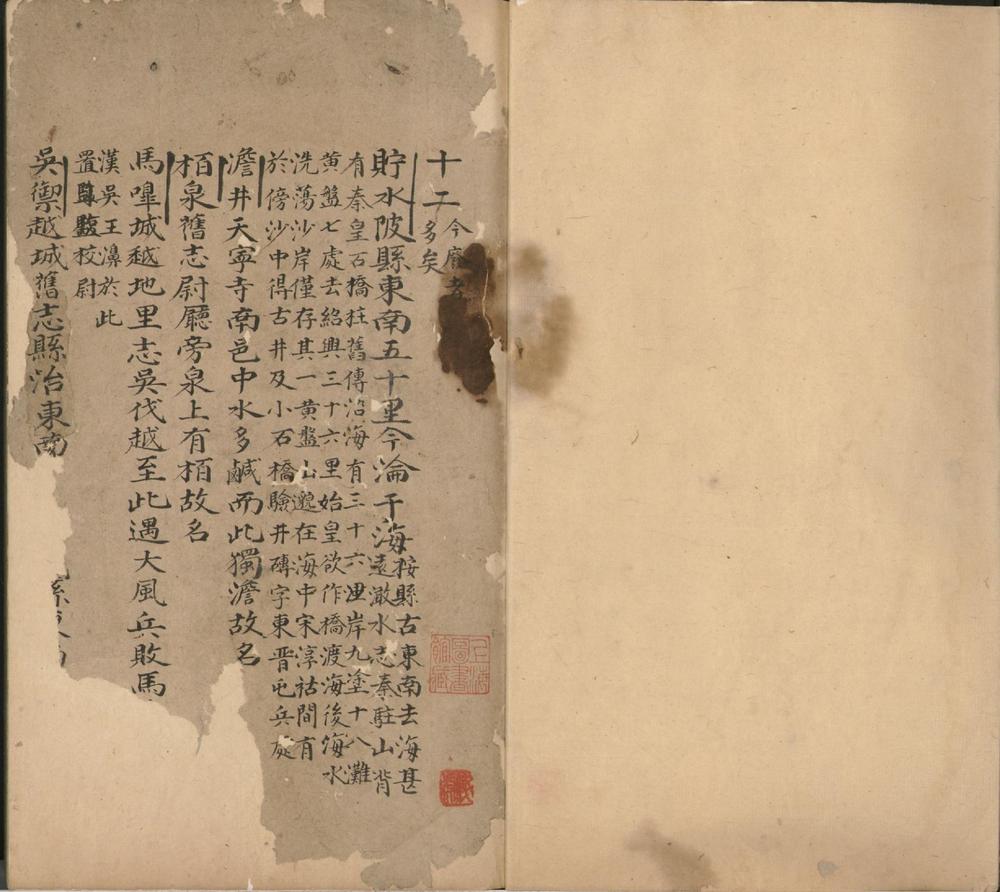 十二
今廢者
多矣
貯水陂縣東南五十里今淪于海
按縣古東南去海甚
遠澉水志秦駐山背
有秦皇石橋柱舊傳沿海有三十六岸九塗十八灘
黄盤七處去紹興三十六里始皇欲作橋渡海後海水
洗蕩沙岸僅存其一黄盤山邈在海中宋淳祜間有
於傍沙中得古井及小石橋驗井磚字東晉屯兵處
澹井天寧寺南邑中水多鹹而此獨澹故名
栢泉舊志尉廳旁泉上有栢故名
馬嘷城越地里志吳伐越至此遇大風兵敗馬
漢吳王濞於此
置校尉
吳禦越城舊志縣治東南
上海圖書館藏